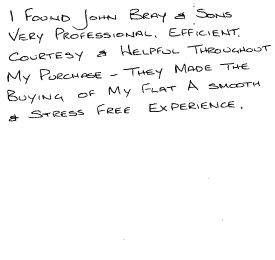 I FOUND JOHN BRAY & SONS
VERY PROFESSIONAL, EFFICIENT,
COURTESY & HELPFUL THROUGHOUT
MY PURCHASE - THEY MADE THE
BUYING OF MY FLAT A SMOOTH
& STRESS FREE EXPERIENCE.